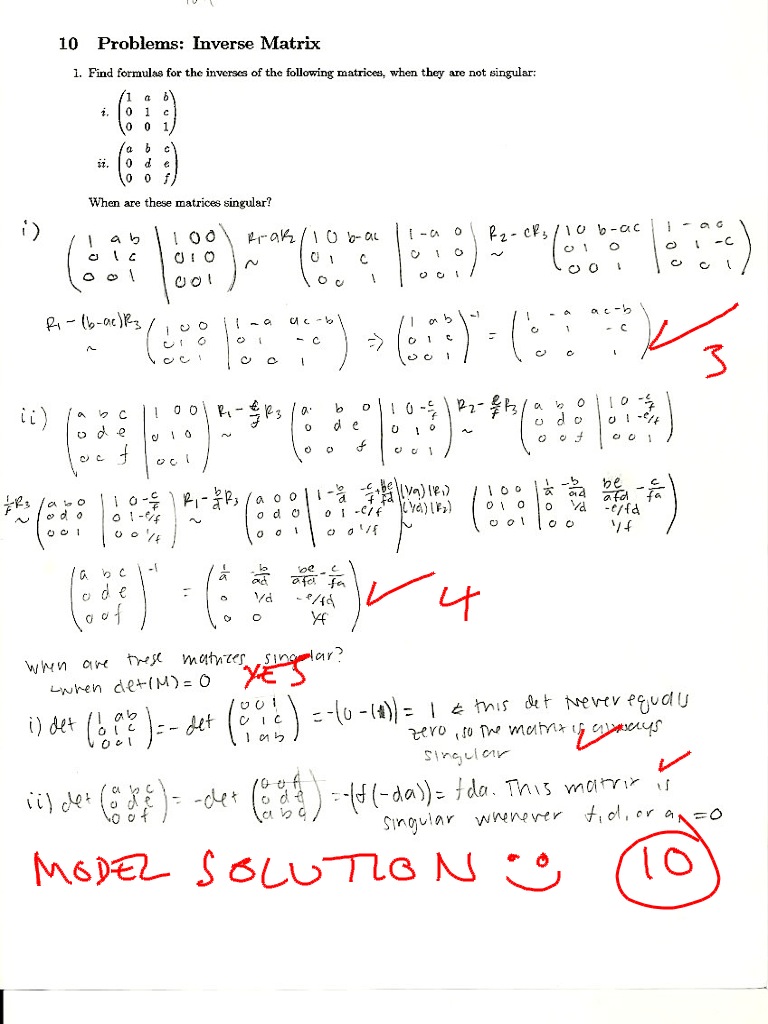 10 Problems: Inverse Matrix
1. Find formulas for the inverses of the following matrices, when they are not singular:
i. (1 a b
0 1 c
0 0 1)
ii. (a b c
0 d e
0 0 f)
When are these matrices singular?
i) (1 a b | 1 0 0
0 1 c | 0 1 0
0 0 1 | 0 0 1) R1-aR2 ~ (1 0 b-ac | 1 -a 0
0 1 c | 0 1 0
0 0 1 | 0 0 1) R2-cR3 ~ (1 0 b-ac | 1 -a 0
0 1 0 | 0 1 -c
0 0 1 | 0 0 1)
R1-(b-ac)R3 ~ (1 0 0 | 1 -a ac-b
0 1 0 | 0 1 -c
0 0 1 | 0 0 1) => (1 a b
0 1 c
0 0 1)^-1 = (1 -a ac-b
0 1 -c
0 0 1) ✓ 3
ii) (a b c | 1 0 0
0 d e | 0 1 0
0 0 f | 0 0 1) R1-c/f R3 ~ (a b 0 | 1 0 -c/f
0 d e | 0 1 0
0 0 f | 0 0 1) R2-e/f R3 ~ (a b 0 | 1 0 -c/f
0 d 0 | 0 1 -e/f
0 0 f | 0 0 1)
1/f R3 ~ (a b 0 | 1 0 -c/f
0 d 0 | 0 1 -e/f
0 0 1 | 0 0 1/f) R1-b/d R2 ~ (a 0 0 | 1 -b/d -c/f+be/fd
0 d 0 | 0 1 -e/f
0 0 1 | 0 0 1/f) (1/a)(R1) (1/d)(R2) ~ (1 0 0 | 1/a -b/ad be/afd - c/fa
0 1 0 | 0 1/d -e/fd
0 0 1 | 0 0 1/f)
(a b c
0 d e
0 0 f)^-1 = (1/a -b/ad be/afd - c/fa
0 1/d -e/fd
0 0 1/f) ✓ 4
When are these matrices singular?
YES
↳when det(M) = 0
i) det (1 a b
0 1 c
0 0 1) = -det (0 0 1
0 1 c
1 a b) = -(0-(1)) = 1 ← this det never equals
zero, so the matrix is always
singular ✓
ii) det (a b c
0 d e
0 0 f) = -det (0 0 f
0 d e
a b c) = -(f(-da)) = fda. This matrix is
singular whenever f, d, or a, = 0 ✓
MODEL SOLUTION 10